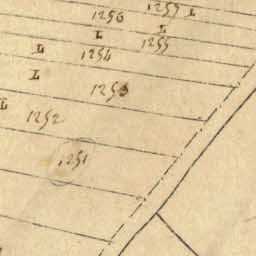 1257 L
1256
L L
1255
L 1254
L
1253
L
1252
1251